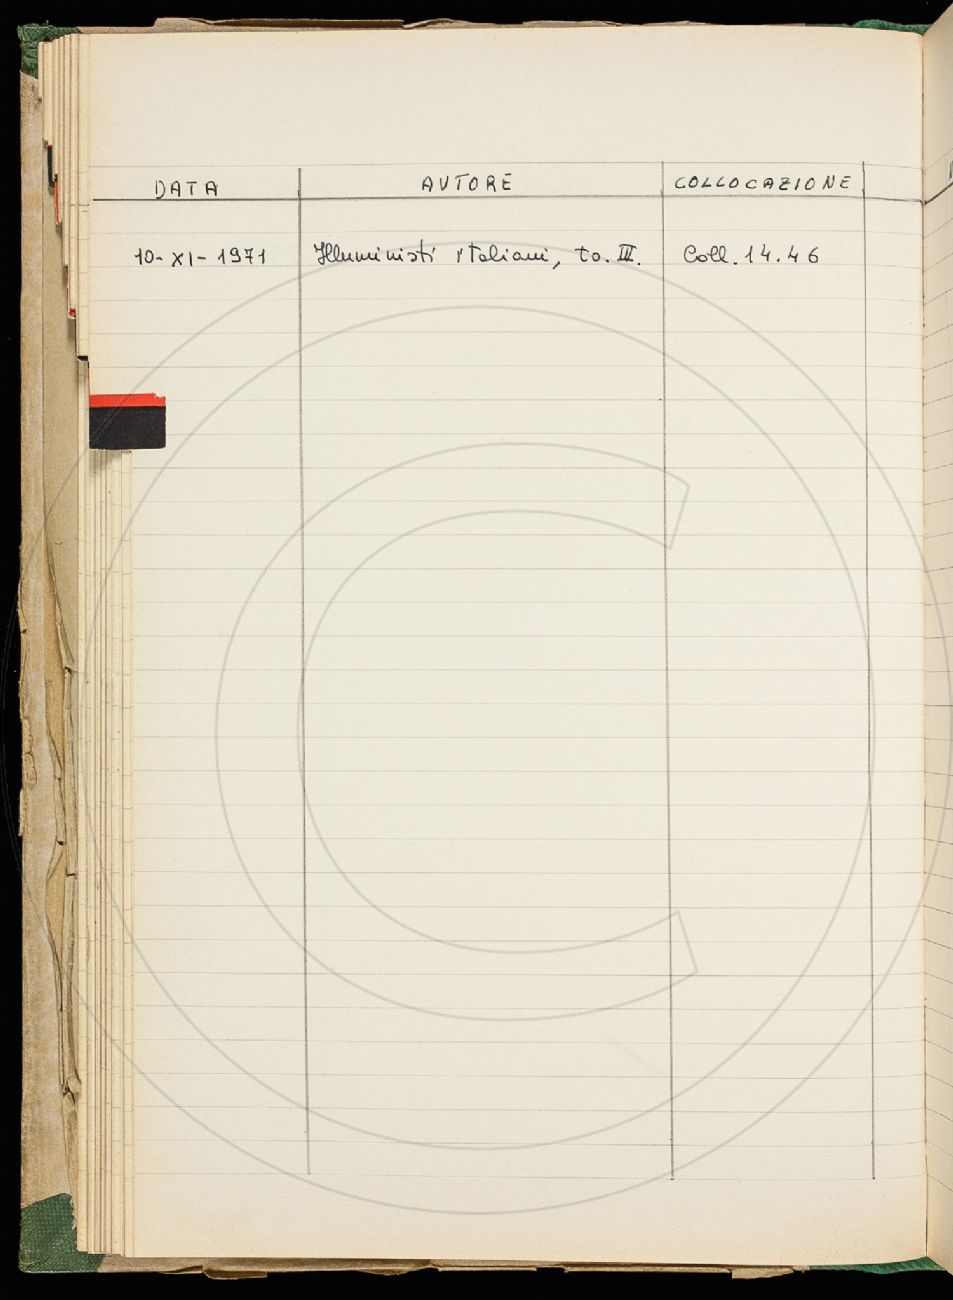 DATA AUTORE COLLOCAZIONE
10-XI-1971 Illuministi Italiani, to. III. Coll. 14.46